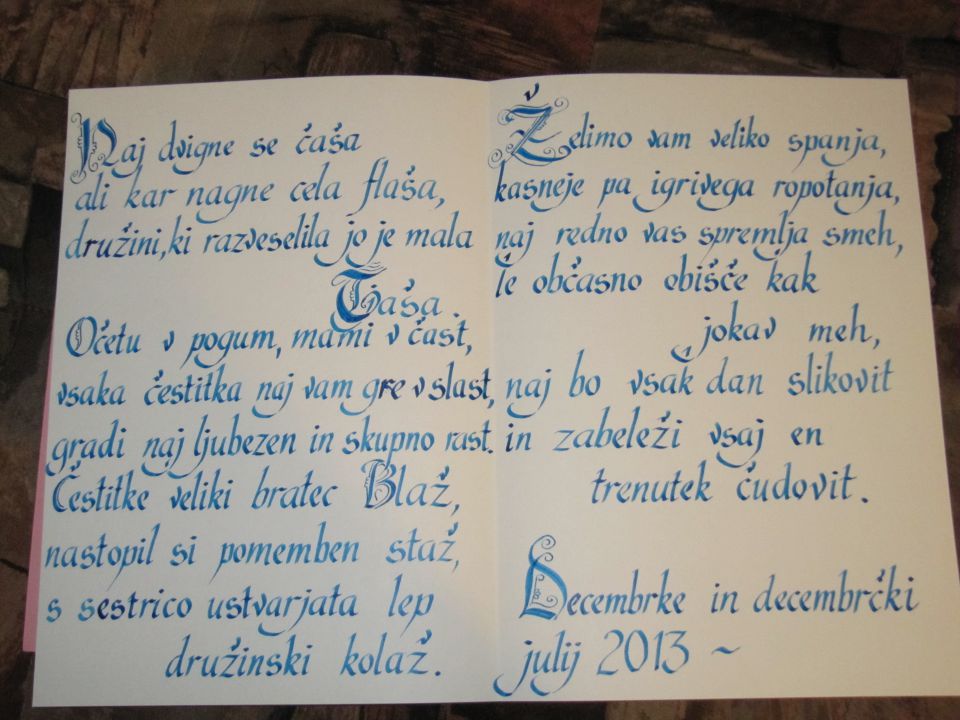 Naj dvigne se čaša
ali kar nagne cela flaša,
družini, ki razveselila jo je mala
Tjaša.
Očetu v pogum, mami v čast,
vsaka čestitka naj vam gre v slast,
gradi naj ljubezen in skupno rast.
Čestitke veliki bratec Blaž,
nastopil si pomemben staž,
s sestrico ustvarjata lep
družinski kolaž.
Želimo vam veliko spanja,
kasneje pa igrivega ropotanja,
naj redno vas spremlja smeh,
le občasno obišče kak
jokav meh,
naj bo vsak dan slikovit
in zabeleži vsaj en
trenutek čudovit.
Decembrke in decembrčki
julij 2013 ~